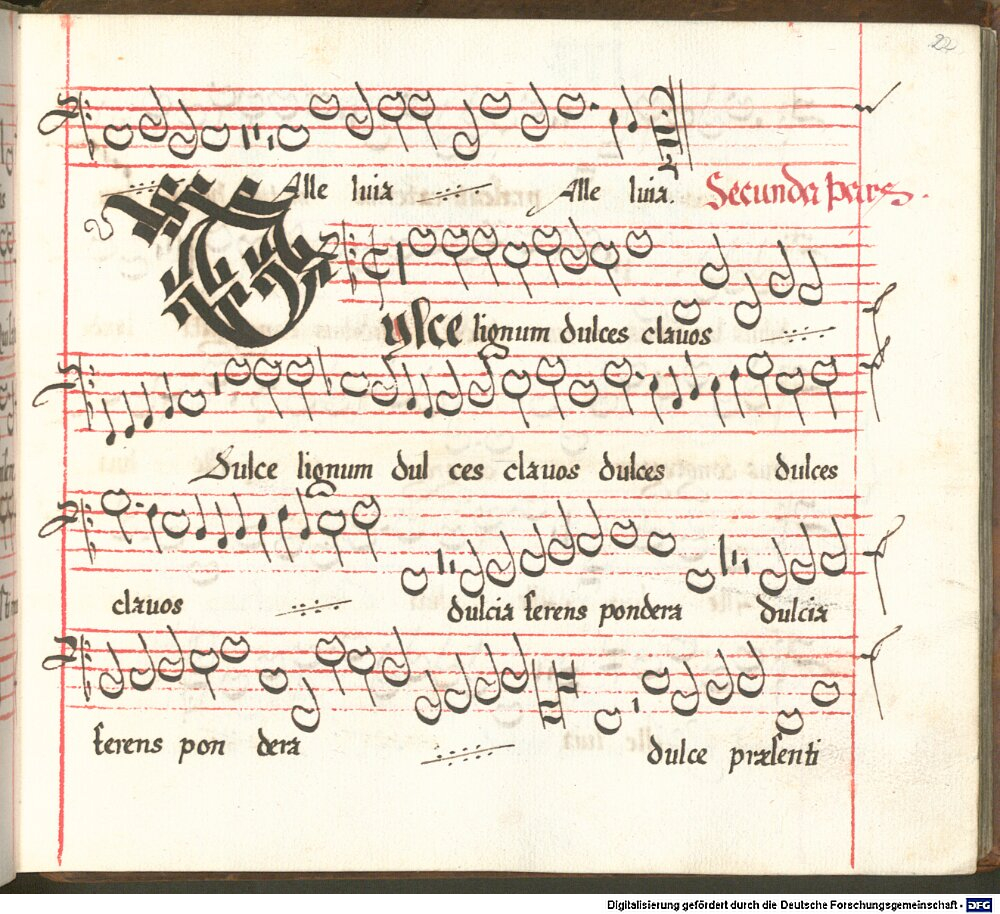 22
Alle luia Alle luia. Secunda pars.
Dulce lignum dulces clavos
Dulce lignum dul ces clavos dulces dulces
clavos dulcia ferens pondera dulcia
ferens pon dera dulce præsenti
Digitalisierung gefördert durch die Deutsche Forschungsgemeinschaft - DFG